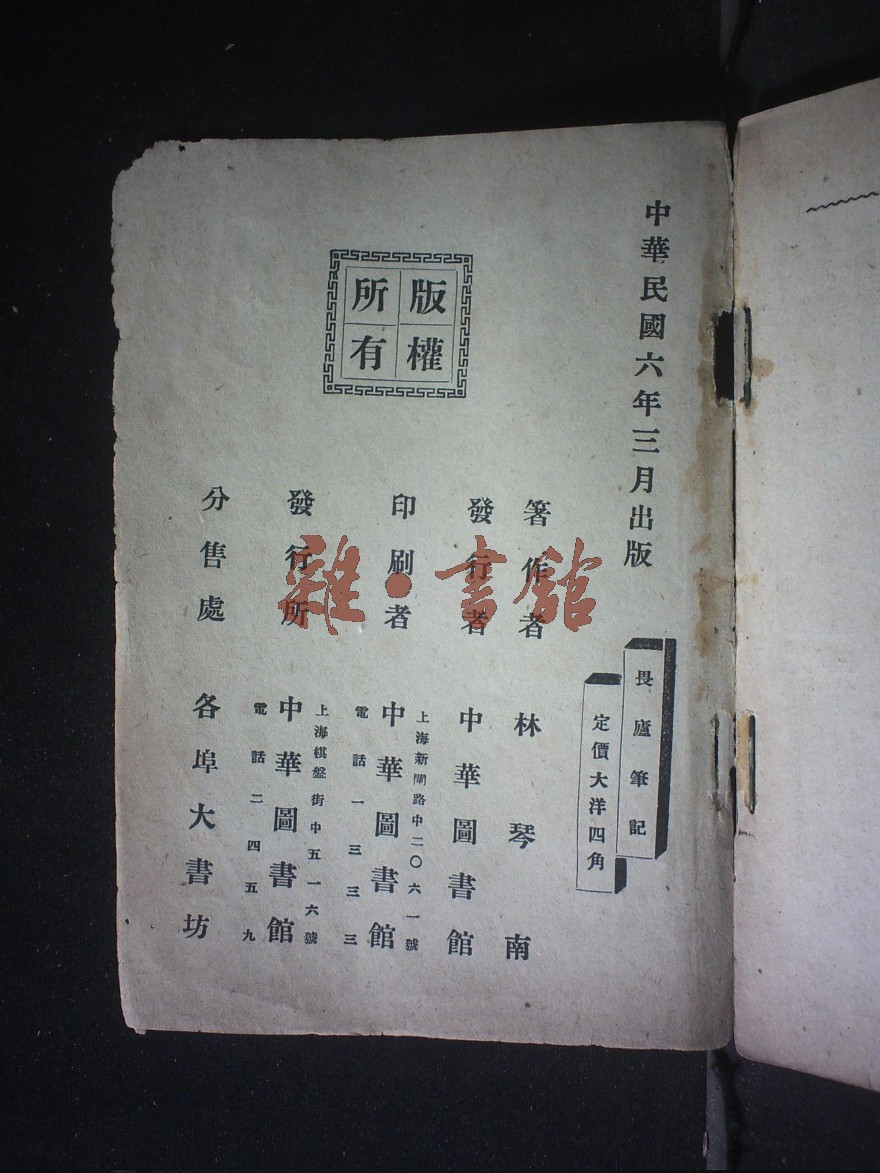 中華民國六年三月出版
畏廬筆記
定價大洋四角
箸作者 林琴南
發行者 中華圖書館
印刷者 上海新閘路中二〇六一號 中華圖書館 電話一三三三
發行所 上海棋盤街中五一六號 中華圖書館 電話二四五九
分售處 各埠大書坊
版權所有
雜·書館